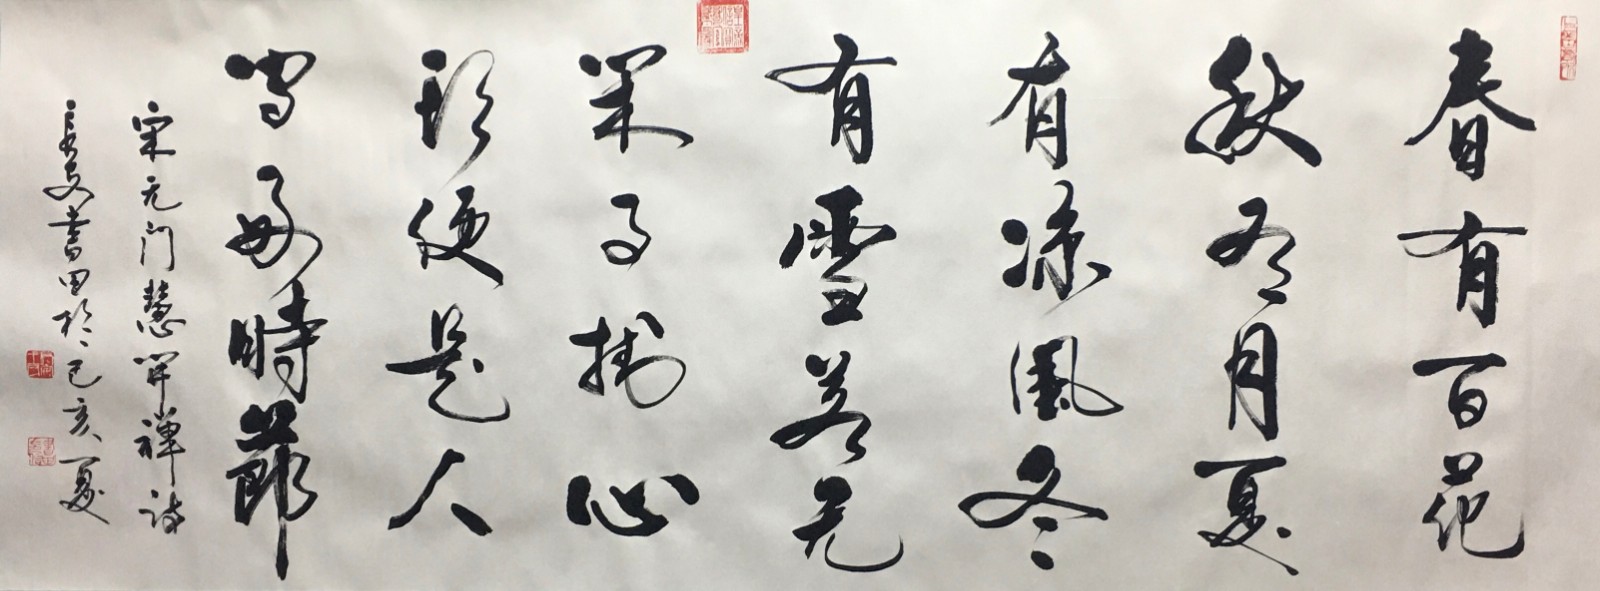 春有百花
秋有月夏
有凉風冬
有雪若无
閑事掛心
頭便是人
間好時節
宋无门慧開禪詩
書田於己亥夏